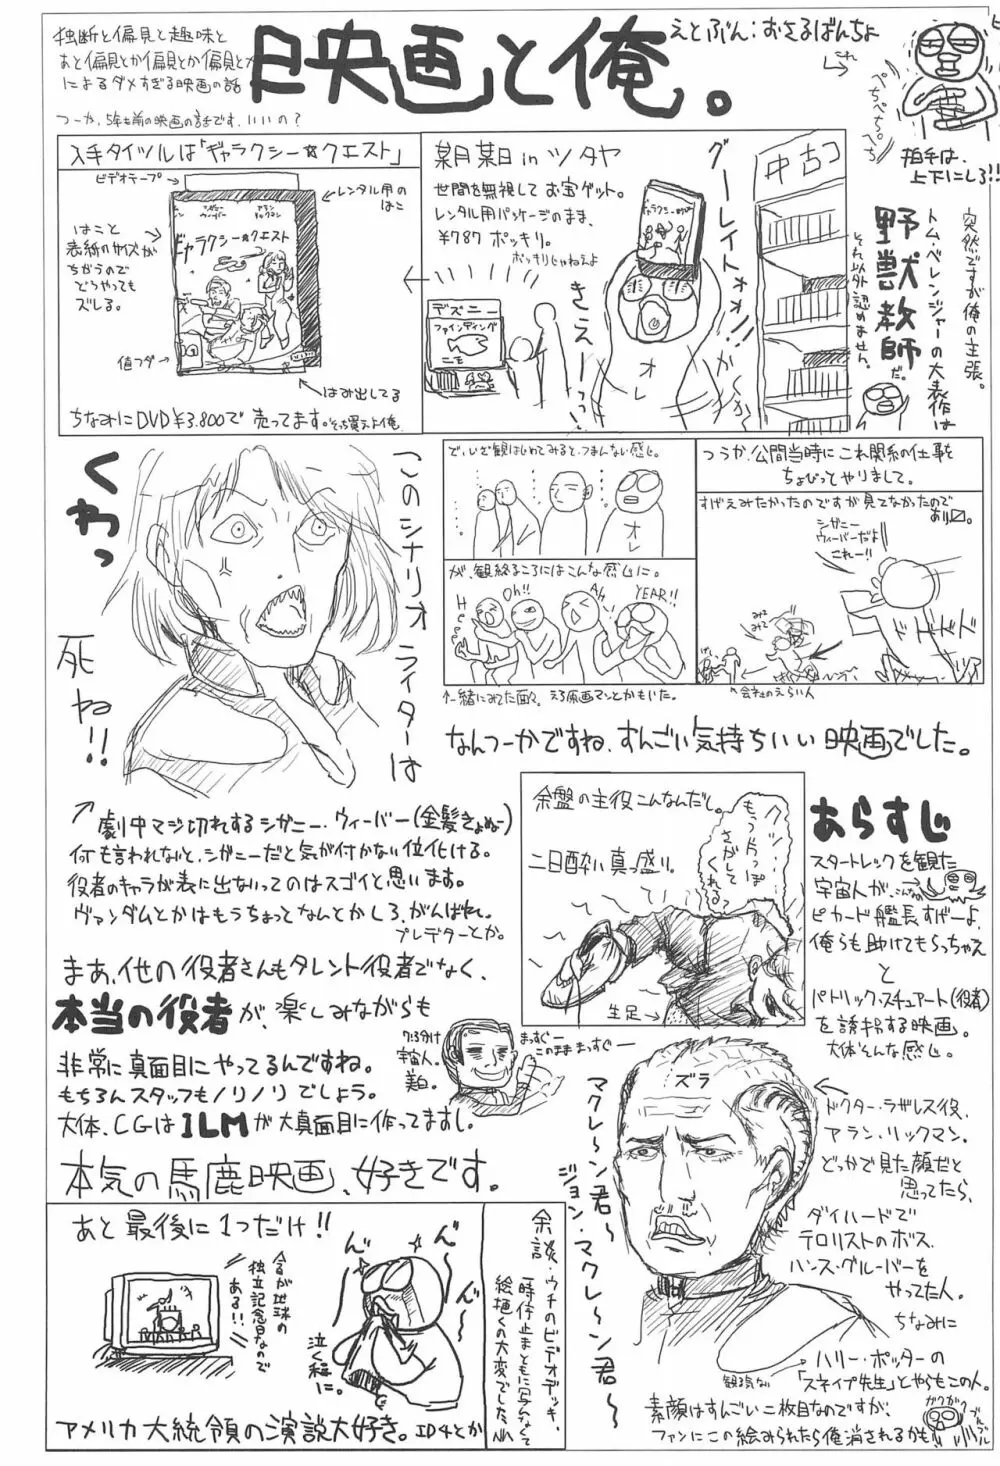 独断と偏見と趣味と
あと偏見とか偏見とか偏見とか
によるダメすぎる映画の話
つーか、5年も前の映画の話です。いいの?
映画と俺。
えとぶん:おさるばんちょ
ぺちぺち。ぺち
拍手は、
上下にしろ!!
入手タイツルは「ギャラクシー☆クエスト」
ビデオテープ→
レンタル用の
はこ
はこと
表紙のサイズが
ちがうので
どうやっても
ズレる。
シガニー
ウィーバー
アラン
リックマン
ギャラクシー☆クエスト
値フダ
はみ出してる
ちなみにDVD¥3.800で売ってます。そっち買えよ俺
某月某日inツタヤ
世間を無視してお宝ゲット。
レンタル用パッケージのまま、
¥787ポッキリ。
ポッキリじゃねえよ
デズニー
ファインディング
ニモ
グーレイトォォ!!
きえーーっっ
オレ
中古コ
突然ですが俺の主張。
トム・ベレンジャーの大表作は
野獣教師だ。
それ以外認めません。
このシナリオライターは
くわっ
死ね!!
で、いざ観はじめてみると、つまんない感じ。
オレ
が、観終るころにはこんな感じに。
Oh!!
Ah
YEAR!!
↑一緒にみてた面々。えろ原画マンとかもいた。
つうか、公開当時にこれ関係の仕事を
ちょびっとやりまして。
すげえみたかったのですが見てなかったので
あり〼。
シガニー
ウィーバーだよ
これー!!
みて
みて
ドドドド
↖会社のえらい人
なんつーかですね、すんごい気持ちいい映画でした。
↗劇中マジ切れするシガニー・ウィーバー(金髪きょぬー)
何も言われないと、シガニーだと気が付かない位化ける。
役者のキャラが表に出ないってのはスゴイと思います。
ヴァンダムとかはもうちょっとなんとかしろ、がんばれ。
プレデターとか。
まあ、他の役者さんもタレント役者でなく、
本当の役者が、楽しみながらも
非常に真面目にやってるんですね。
もちろんスタッフもノリノリでしょう。
大体、CGはILMが大真面目に作ってますし。
本気の馬鹿映画、好きです。
7:3分け
宇宙人。
美白。
まっすぐー
このまままっすぐー
余盤の主役こんなんだし。
二日酔い真っ盛り。
生足→
あらすじ
スタートレックを観た
宇宙人が、
ピカード艦長すげーよ、
俺らも助けてもらっちゃえ
と
パトリック・スチュアート(役者)
を誘拐する映画。
大体そんな感じ。
マクレ〜ン君〜
ジョン・マクレ〜ン君〜
ズラ
ドクター・ラザレス役、
アラン・リックマン。
どっかで見た顔だと
思ってたら、
ダイハードで
テロリストのボス、
ハンス・グルーバーを
やってた人。
ちなみに
ハリー・ポッターの
「スネイプ先生」とやらもこの人。
観る気ない
素顔はすんごい二枚目なのですが、
ファンにこの絵みられたら俺消されるかも
ガクガク
ブルブル
あと最後に1つだけ!!
今日が地球の
独立記念日なので
ある!!
泣く程に。
アメリカ大統領の演説大好き。ID4とか
余談・ウチのビデオデッキ、
一時停止まともに写んなくて
絵描くの大変でした。